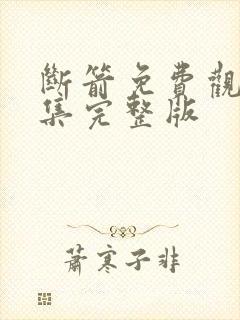 斷箭免費觀
集完整版
蕭寒子非